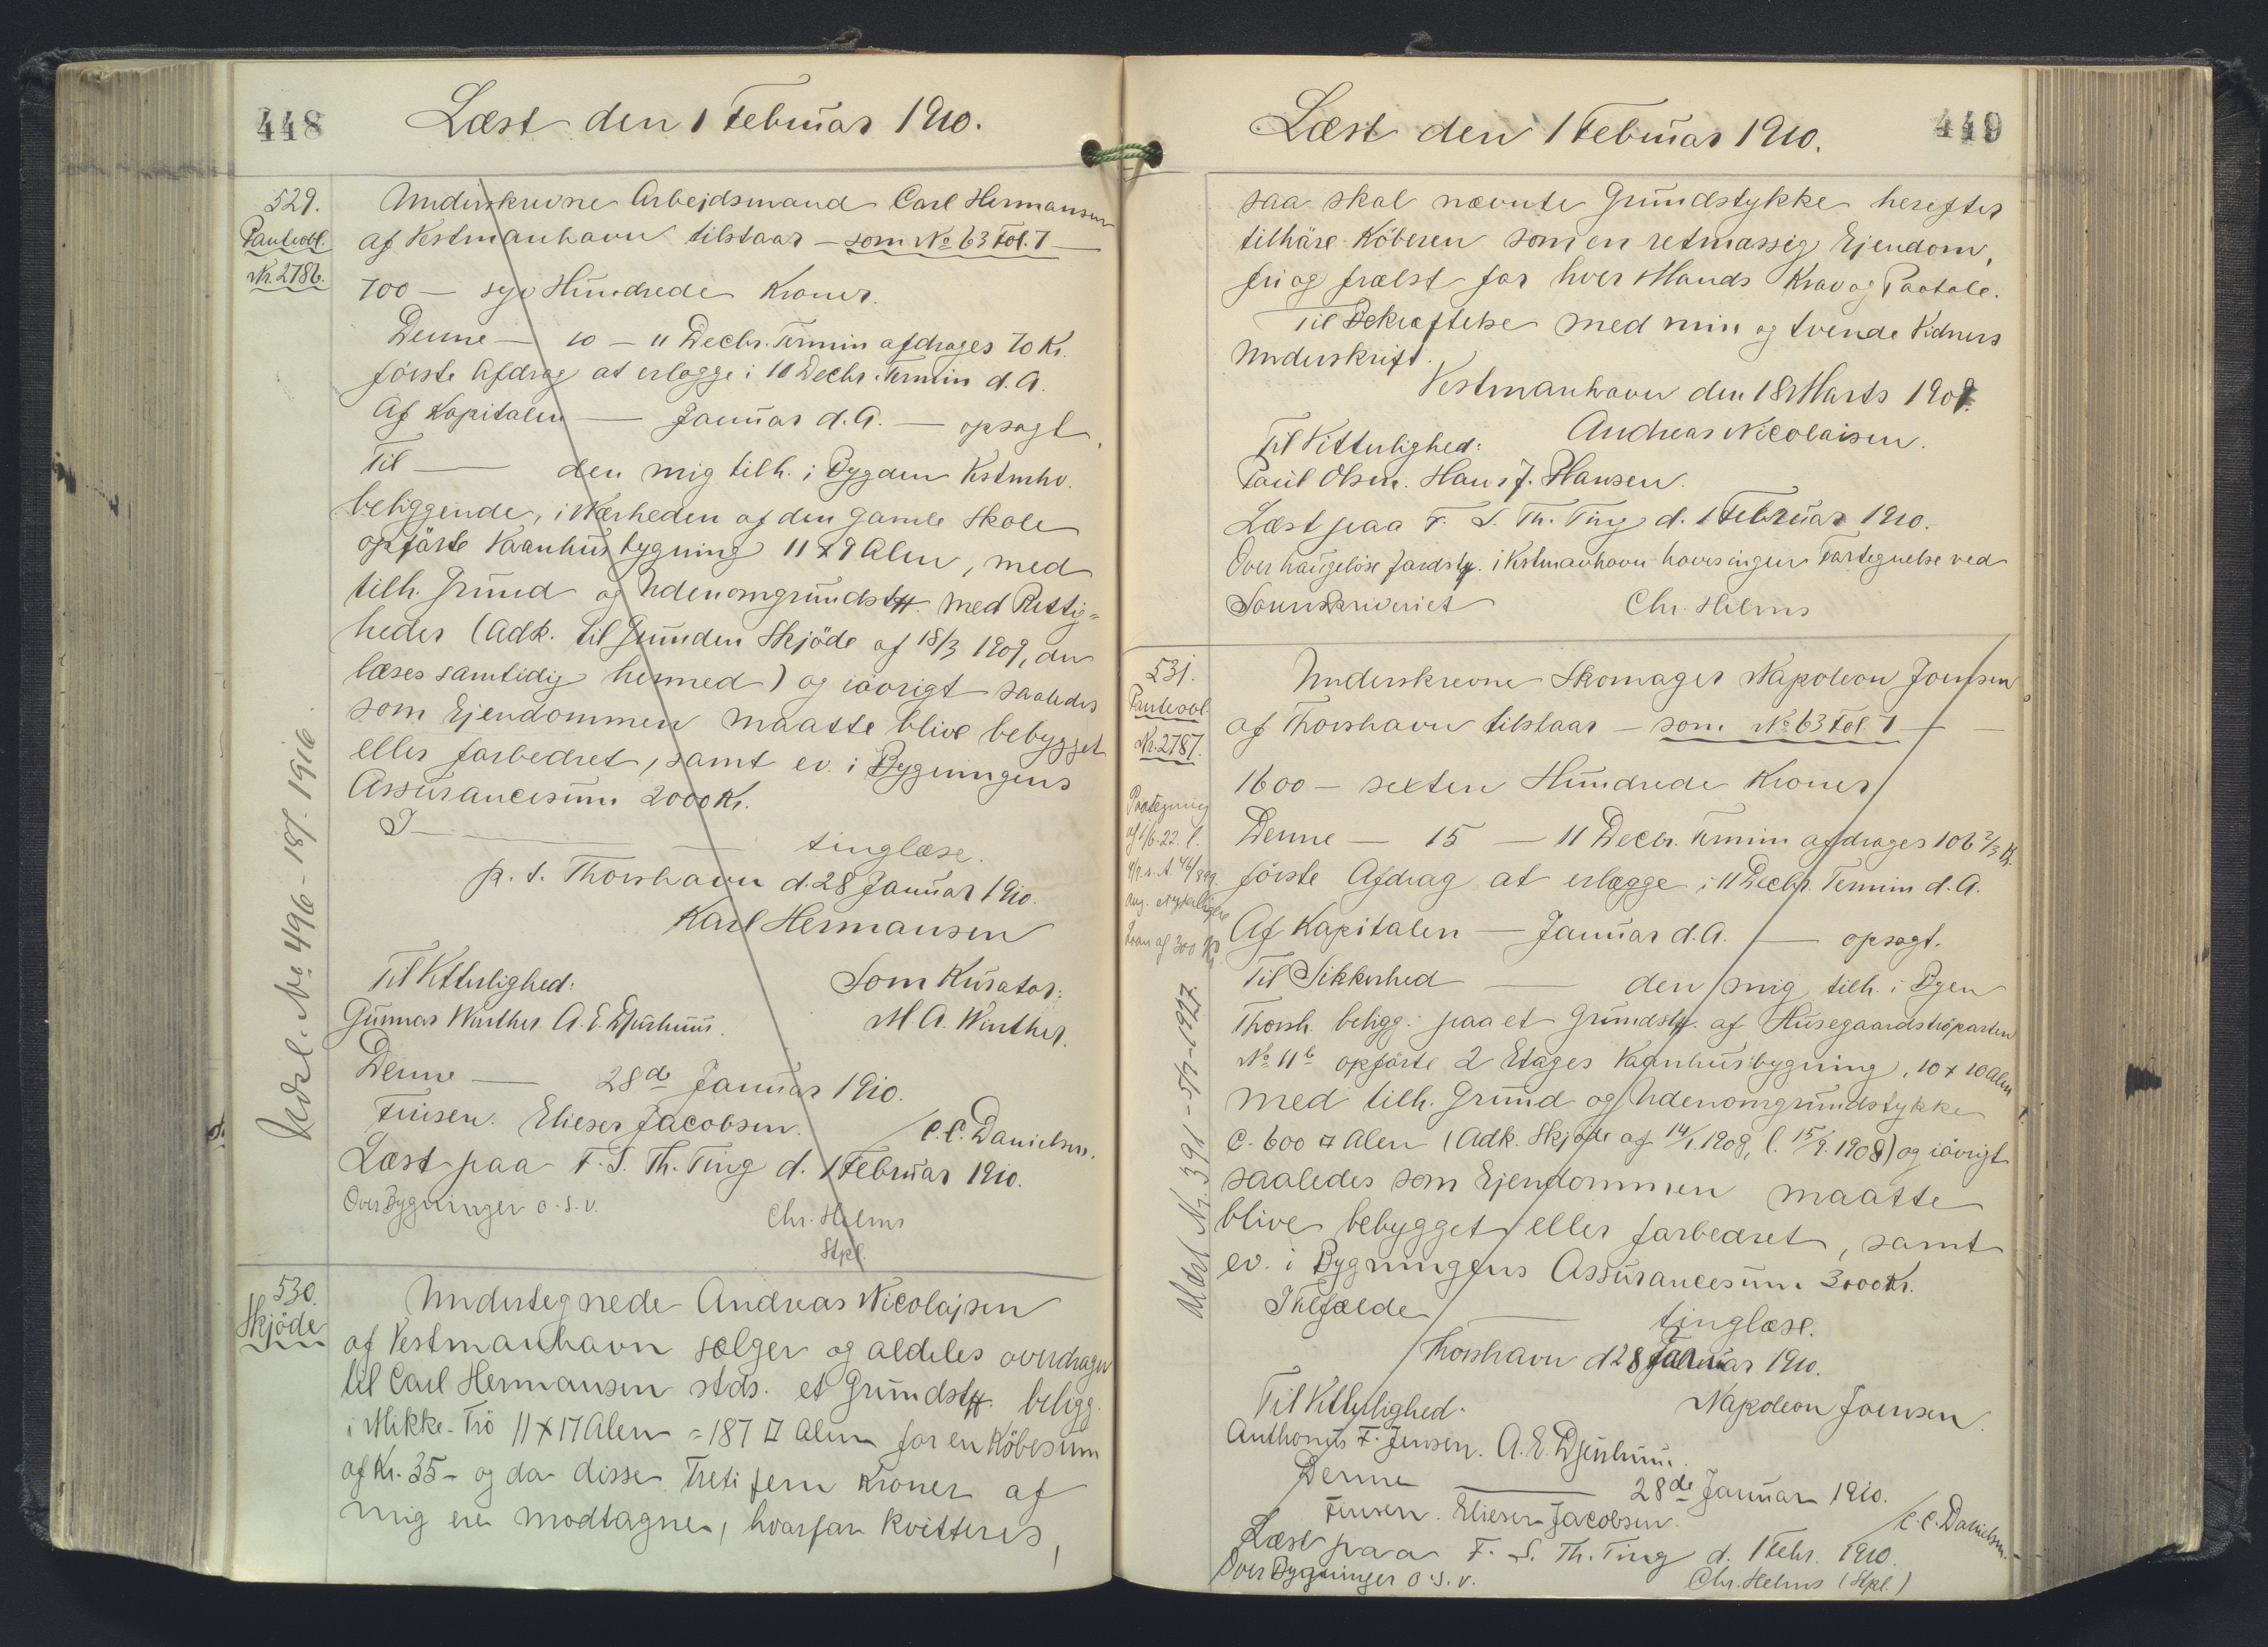 448
Læst den 1 Februar 1910.
529.
Panteobl.
Nr. 2786.
Underskrevne Arbejdsmand Carl Hermansen
af Vestmanhavn tilstaar — som No 63 Fol. 7 —
700 — syv Hundrede Kroner.
Denne — 10 — 11 Decbr. Termin afdrages 70 Kr.
förste Afdrag at erlægge i 11 Decbr. Termin d. A.
Af Kapitalen — Januar d. A. — opsagt.
Til — den mig tilh. i Bygden Vstmhv.
beliggende, i Nærheden af den gamle Skole
opförte Vaanhusbygning 11 x 9 Alen, med
tilh. Grund og Udenomgrundstk. med Rettig=
heder (Adk. til Grunden Skjöde af 18/3 1909, der
læses samtidig hermed) og iövrigt saaledes
som Ejendommen maatte blive bebygget
eller forbedret, samt ev. i Bygningens
Assurancesum 2000 Kr.
I — tinglæse.
p. t. Thorshavn d. 28 Januar 1910.
Karl Hermansen
Til Vitterlighed:
Som Kurator:
Gunnar Winther. A. E. Djurhuus.
M A. Winther.
Denne — 28de Januar 1910.
Finsen. Elieser Jacobsen.
/C. C. Danielsen.
Læst paa F. S. Th. Ting d. 1 Februar 1910.
Over Bygninger o. s. v.
Chr. Helms
Stpl.
Udsl. No 496 - 18/7. 1916.
530.
Skjöde
Undertegnede Andreas Nicolajsen
af Vestmanhavn sælger og aldeles overdrager
til Carl Hermansen stds. et Grundstk. beligg.
i Mikke-Trö 11 x 17 Alen = 187 □ Alen for en Köbesum
af Kr. 35 - og da disse Treti fem Kroner af
mig ere modtagne, hvorfor kvitteres,
449
Læst den 1 Februar 1910.
saa skal nævnte Grundstykke herefter
tilhöre Köberen som en retmæssig Ejendom,
fri og frælst for hver Mands Krav og Paatale.
Til Bekræftelse med min og tvende Vidners
Underskrift.
Vestmanhavn den 18 Marts 1909.
Til Vitterlighed:
Andreas Nicolaisen.
Poul Olsen. Hans J. Hansen.
Læst paa F. S. Th. Ting d. 1 Februar 1910.
Over haugelöse Jordstk. i Vstmanhavn haves ingen Fortegnelse ved
Sorenskriveriet
Chr. Helms
531.
Panteobl.
Nr. 2787.
Underskrevne Skomager Napoleon Joensen
af Thorshavn tilstaar — som No 63 Fol. 7 —
1600 — sexten Hundrede Kroner
Denne — 15 — 11 Decbr. Termin afdrages 106 2/3 Kr.
förste Afdrag at erlægge i 11 Decbr. Termin d. A.
Af Kapitalen — Januar d. A. — opsagt.
Til Sikkerhed — den mig tilh. i Byen
Thorsh. beligg. paa et Grundstk. af Husegaardstróparten
No 11b opförte 2 Etages Vaanhusbygning, 10 x 10 Alen
med tilh. Grund og Udenomgrundstykke
c. 600 □ Alen (Adk. Skjöde af 14/1. 1908, l. 15/9. 1908) og iövrigt
saaledes som Ejendommen maatte
blive bebygget eller forbedret, samt
ev. i Bygningens Assurancesum 3000 Kr.
I Tilfælde — tinglæse.
Thorshavn d 28 Januar 1910.
Til Vitterlighed.
Napoleon Joensen.
F. Jensen. A. E. Djurhuus.
Denne — 28de Januar 1910.
Finsen. Elieser Jacobsen.
/C. C. Danielsen.
Læst paa F. S. Th. Ting d. 1 Febr. 1910.
Over Bygninger o. s. v.
Chr. Helms (Stpl.)
Paategning
Laan af 300 Kr.
Udsl Nr. 391 - 5/7 - 1927.